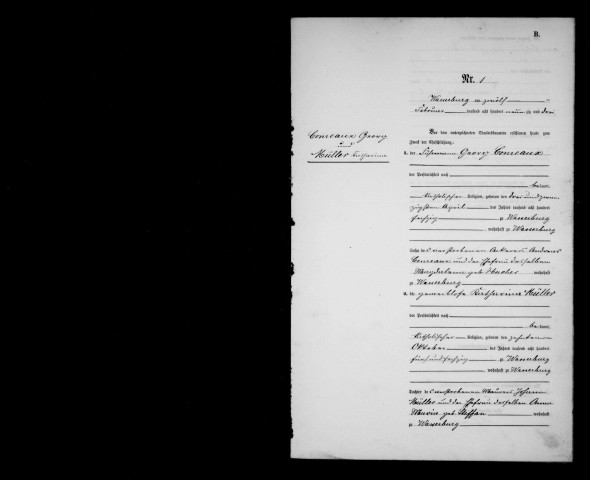 B.
Nr. 1
Wasserburg am zwölften
Februar tausend acht hundert neunzig und drei
Conreaux Georg
u. d.
Müller Katharina
Vor dem unterzeichneten Standesbeamten erschienen heute zum
Zweck der Eheschließung:
1. der Georg Conreaux
der Persönlichkeit nach
be kannt,
katholischer Religion, geboren den drei und zwan
zigsten April des Jahres tausend acht hundert
sechzig zu Wasserburg
, wohnhaft zu Wasserburg
Sohn des verstorbenen Ackerers Andreas
Conreaux und der Ehefrau desselben
Magdalena geb. wohnhaft
zu Wasserburg
2. die gewerblose Katharina Müller
der Persönlichkeit nach
be kannt,
katholischer Religion, geboren den zehnten
Oktober des Jahres tausend acht hundert
fünf und sechzig zu Wasserburg
, wohnhaft zu Wasserburg
Tochter des verstorbenen Maurers Johann
Müller und der Ehefrau desselben Anna
Maria geb. Steffan wohnhaft
zu Wasserburg